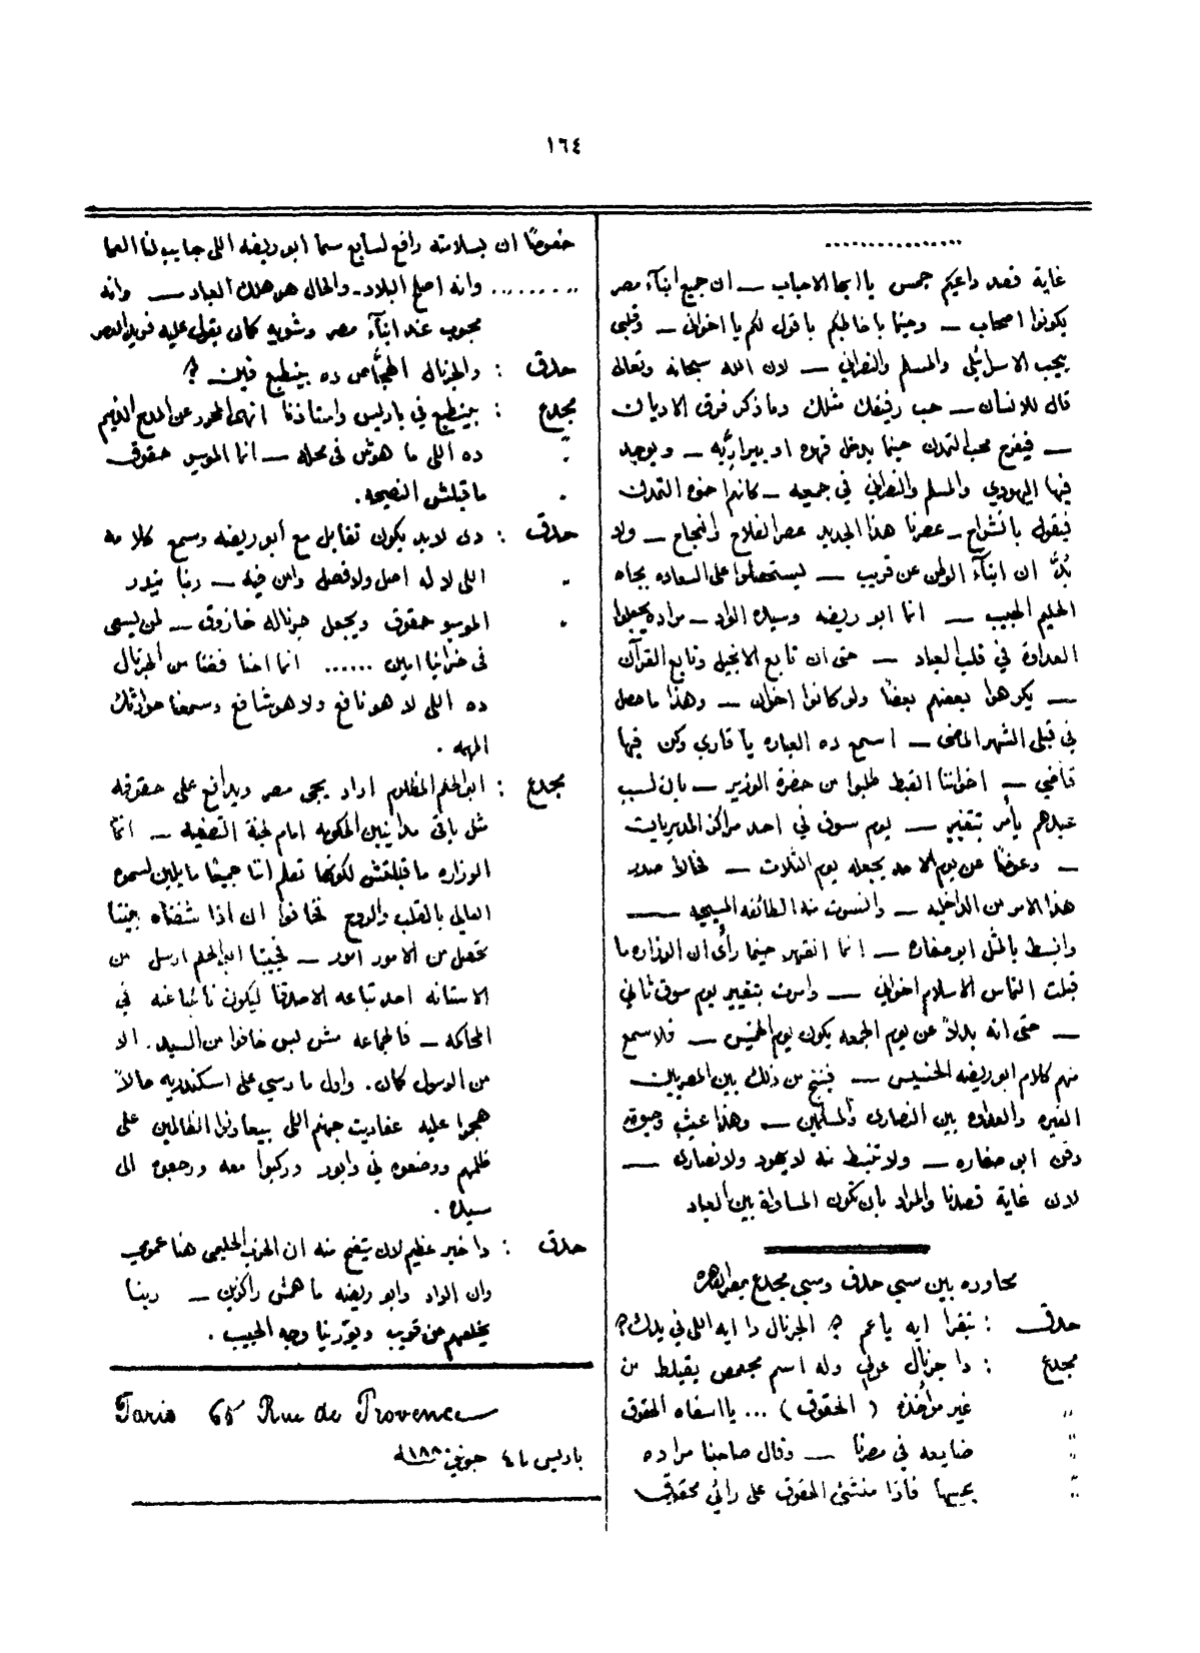 ١٦٤
...............
غاية قصد داعيكم جمس يا ايها الاحباب — ان جميع ابنآء مصر
يكونوا اصحاب — وحينما باخاطبكم باقول لكم يا اخوانى — وقلبي
يحب الاسرائيلي والمسلم والنصراني — لان الله سبحانه وتعالى
قال للانسان — حب رفيقك مثلك وما ذكر فرق الاديان
— فيفرح محب التمدن حينما يدخل قهوه او بيراريه — ويوجد
فيها اليهودي والمسلم والنصراني في جمعيه — كانهم اخوة التمدن
فيقول بانشراح — عصرنا هذا الجديد عصر الفلاح والنجاح — ولا
بُدَّ ان ابنآء الوطن عن قريب — ليستحصلوا على السعاده بجاه
الحليم الحبيب — انما ابو ريضه وسيده الواد — مراده يجعلوا
العداوة في قلب العباد — حتى ان تابع الانجيل وتابع القرآن
— يكرهوا بعضهم بعضًا ولو كانوا اخوان — وهذا ما حصل
في قبلى الشهر الماضى — اسمع ده العباره يا قاري وكن فيها
قاضي — اخواننا القبط طلبوا من حضرة الوزير — بان لسبب
عيدهم يأمر بتغيير — يوم سوق في احد مراكز المديريات
— وعوضًا عن يوم الاحد يجعله يوم الثلاث — فحالاً صدر
هذا الامر من الداخليه — وانسرت منه الطائفه المسيحيه —
وانبسط بالمثل ابو صفاره — انما انقهر حينما رأى ان الوزاره ما
قبلت التماس الاسلام اخواني — وامرت بتغيير يوم سوق ثاني
— حتى انه بدلاً عن يوم الجمعه يكون يوم الخميس — فلا سمع
منهم كلام ابو ريضه الخسيس — فينتج من ذلك بين المصريين
الغيره والعداوه بين النصارى والمسلمين — وهذا عيب وحيوة
دقن ابو صفاره — ولا تنبسط منه لا يهود ولا نصارى —
لان غاية قصدنا والمراد بان تكون المساواة بين العباد
محاوره بين سي حدق وسي مجدع بمصر القاهره
حدق : بتقرا ايه يا عم ؟ الجرنال دا ايه اللى في يدك ؟
مجدع : دا جرنال عربي وله اسم مجعمص بقيلط من
,, غير مؤاخذه ( الحقوق ) ... يا اسفاه الحقوق
,, ضايعه في مصرنا — وقال صاحبنا مراده
,, يحييها فاذا منشئ الحقوق على رائي محقوق
خصوصًا ان بسلامته رافع لسابع سما ابو ريضه اللى جايب لنا العما
......... وانه اصلح البلاد — والحال هو هلك العباد — وانه
محبوب عند ابنآء مصر وشويه كمان يقول عليه فريد العصر
حدق : والجرنال الهجّاص ده بينطبع فين ؟
مجدع : بينطبع في باريس واستاذنا انهى المحرر عن المدح الذميم
. ده اللى ما هوّش فى محله — انما الموسيو حقوق
. ما قبلش النصيحه .
حدق : دى لابد يكون تقابل مع ابو ريضه وسمع كلامه
. اللى لا له اصل ولا فصل وامن فيه — ربنا ينور
. الموسيو حقوق ويجعل جرناله خازوق — لمن يسعى
فى خرابنا امين ...... انما احنا فضنا من الجرنال
ده اللى لا هو نافع ولا هو شافع وسمعنا حوادثك
المهمه .
مجدع : ابو الحلم المظلوم اراد يجى مصر ويدافع على حقوقه
مثل باقى مداينين الحكومه امام لجنة التصفيه — انما
الوزاره ما قبلتش لكونها تعلم اننا جميعًا مايلين لسموه
العالي بالقلب والروح فخافوا ان اذا شفناه بيننا
تحصل من الامور امور — فجيبنا ابو الحلم ارسل من
الاستانه احد تباعه الاصدقا ليكون نائبًا عنه في
المحاكمه — فالجماعه مش بس خافوا من السيد . الا
من الرسول كمان . واول ما رسي على اسكندريه حالاً
هجموا عليه عفاريت جهنم اللى بيعاونوا الظالمين على
ظلمهم ووضعوه في وابور وركبوا معه ورجعوه الى
سيده .
حدق : دا خبر عظيم لان يتضح منه ان الحزب الحليمى هنا عمومي
وان الواد وابو ريضه ما همش راكزين — ربنا
يخلصهم عن قريب ويورّينا وجه الحبيب .
Paris 65 Rue de Provence
باريس ٢٤ جونيو سنة ١٨٨٠